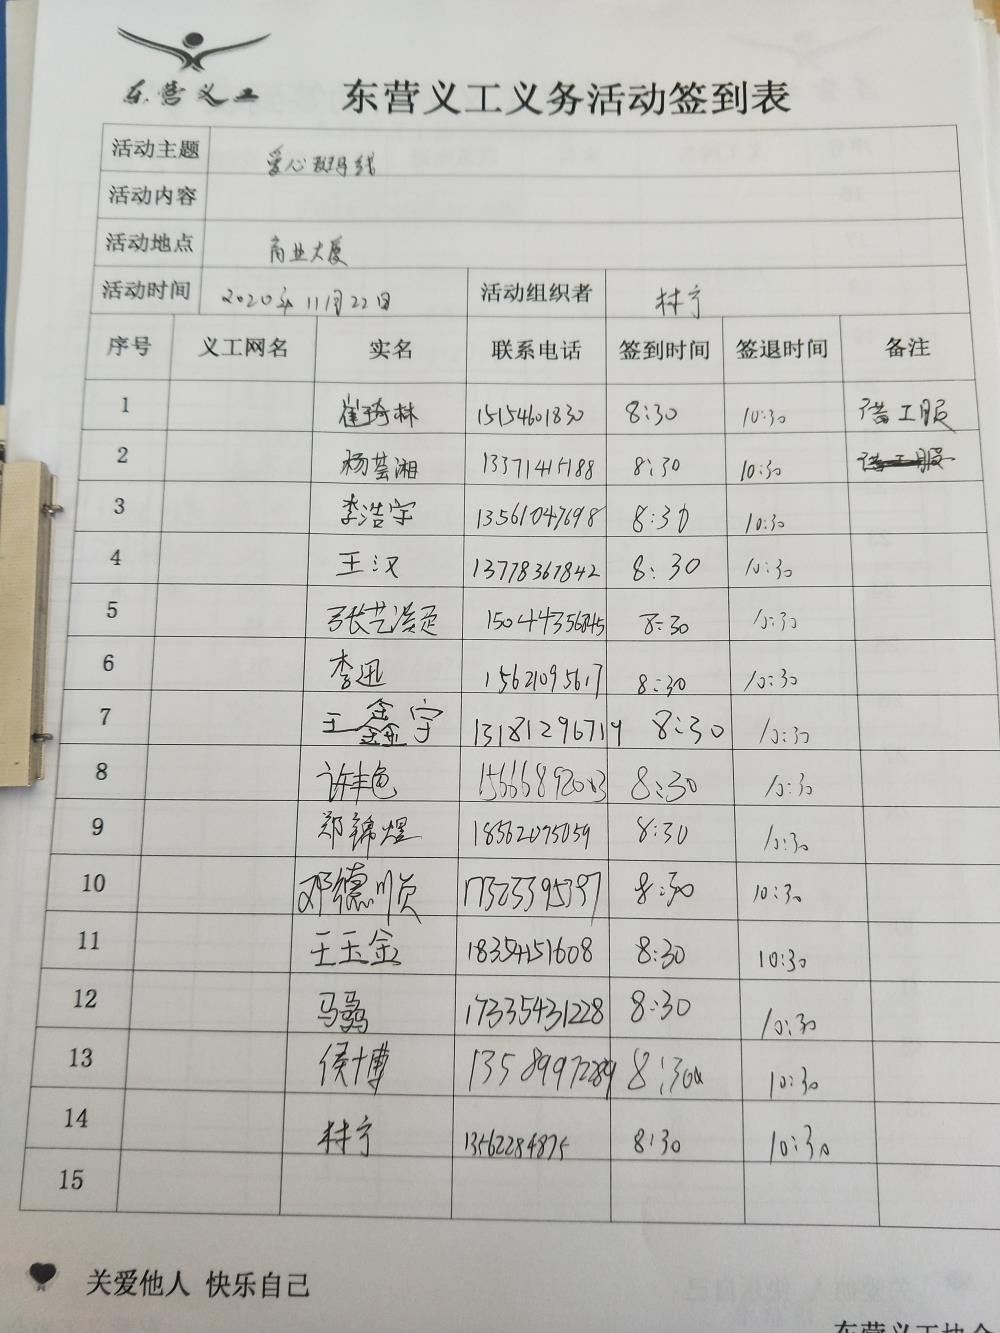 东营义工
东营义工义务活动签到表
活动主题 爱心斑马线
活动内容
活动地点 商业大厦
活动时间 2020年11月22日 活动组织者 林宁
序号 义工网名 实名 联系电话 签到时间 签退时间 备注
1 崔琦林 15154601830 8:30 10:30 借工服
2 杨芸湘 13371415188 8:30 10:30
3 李浩宇 13561047698 8:30 10:30
4 王汉 13778367842 8:30 10:30
5 8:30 10:30
6 李迅 15621095617 8:30 10:30
7 王鑫宇 13181296719 8:30 10:30
8 8:30 10:30
9 郑锦煜 18562075059 8:30 10:30
10 邓德顺 17323395397 8:30 10:30
11 王玉金 18354151608 8:30 10:30
12 马骉 17335431228 8:30 10:30
13 侯博 13589997289 8:30 10:30
14 林宁 13562284875 8:30 10:30
15
关爱他人 快乐自己
东营义工协会